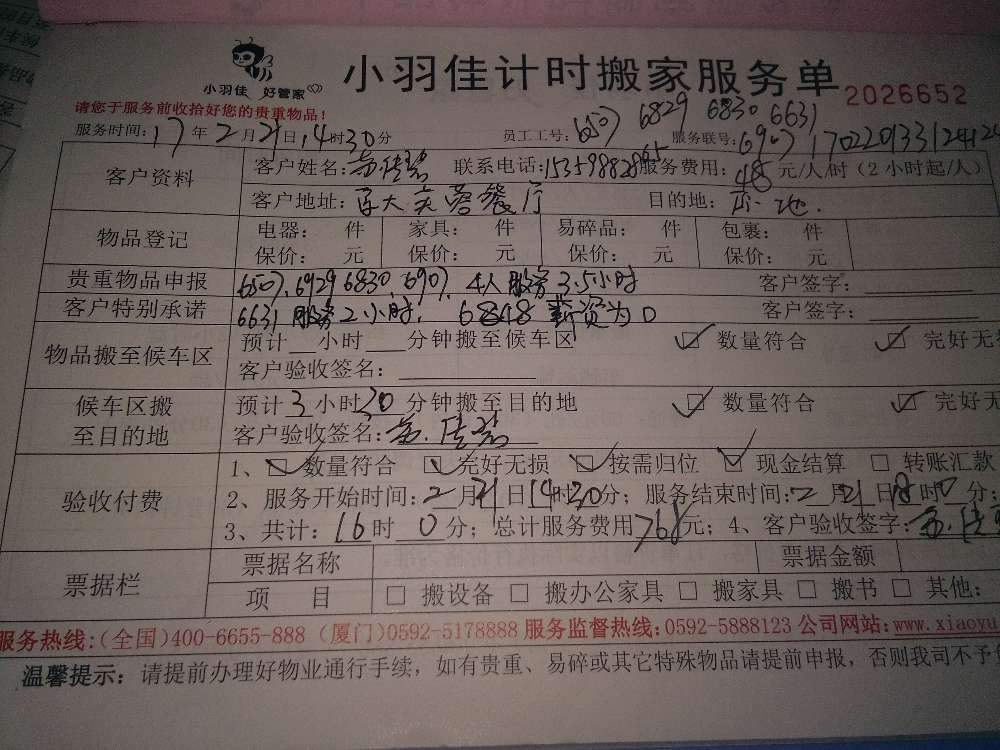 小羽佳 好管家
小羽佳计时搬家服务单
2026652
请您于服务前收拾好您的贵重物品!
6507 6829 6830 6631
服务时间:17年2月21日14时30分 员工工号: 服务联号:6907
客户资料 客户姓名: 联系电话: 服务费用:48元/人/时(2小时起/人)
客户地址: 大芙蓉餐厅 目的地:
物品登记 电器: 件 家具: 件 易碎品: 件 包裹: 件
保价: 元 保价: 元 保价: 元 保价: 元
贵重物品申报 6507、6929 6830、6907、4人服务3.5小时 客户签字:
客户特别承诺 6631服务2小时, 6848薪资为0 客户签字:
物品搬至候车区 预计 小时 分钟搬至候车区 数量符合 完好无
客户验收签名:
候车区搬至目的地 预计3小时30分钟搬至目的地 数量符合 完好无
客户验收签名:
验收付费 1、 数量符合 完好无损 按需归位 现金结算 转账汇款
2、服务开始时间:2月21日14时30分; 服务结束时间:2月21日18时0分;
3、共计:16时0分; 总计服务费用768元; 4、客户验收签字:
票据栏 票据名称 票据金额
项 目 搬设备 搬办公家具 搬家具 搬书 其他:
服务热线:(全国)400-6655-888 (厦门)0592-5178888 服务监督热线:0592-5888123 公司网站:www.xiaoyu
温馨提示:请提前办理好物业通行手续,如有贵重、易碎或其它特殊物品请提前申报,否则我司不予